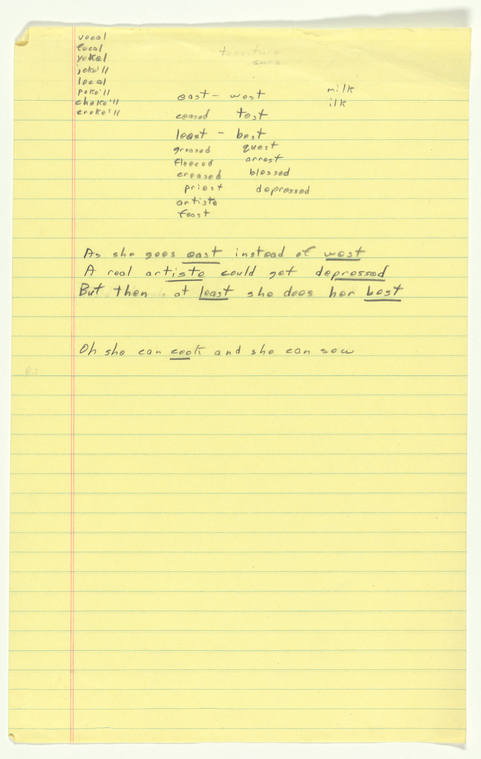 vocal
focal
yokel
joke'll
local
poke'll
choke'll
croke'll
milk
ilk
east - west
ceased test
least - best
greased quest
fleeced arrest
creased blessed
priest depressed
artiste
feast
As she goes east instead of west
A real artiste could get depressed
But then at least she does her best
Oh she can cook and she can sew